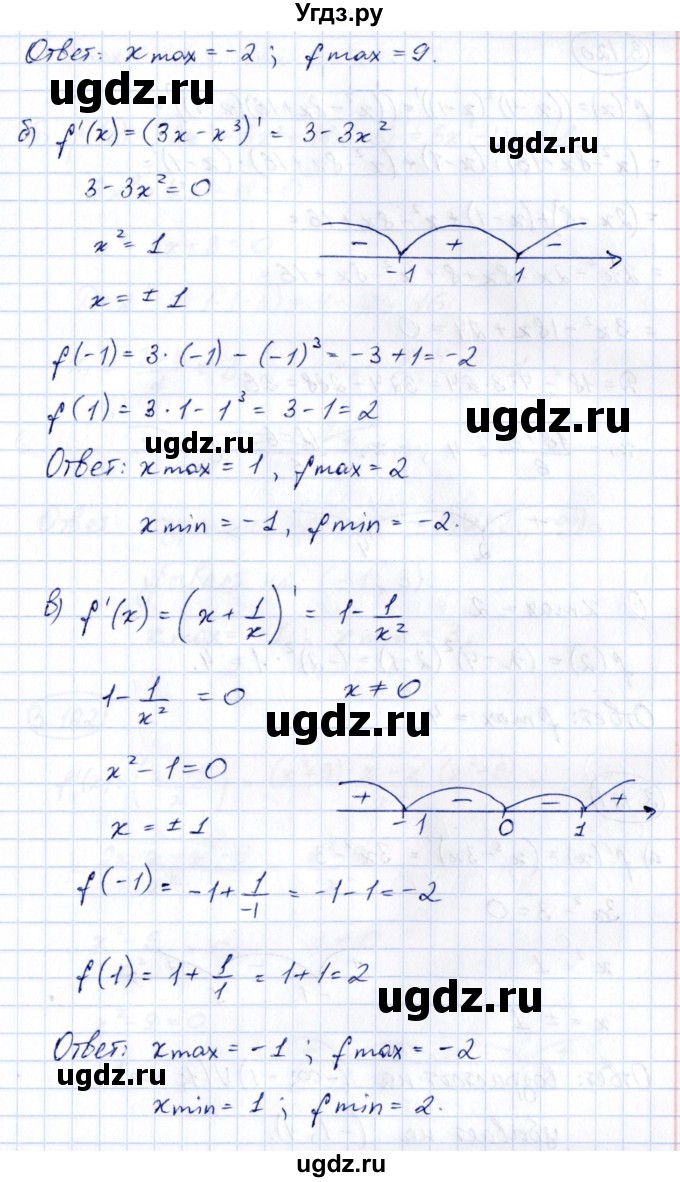 Угдз.ру
Ответ: x max = -2 ; f max = 9.
ugdz.ru
ugdz.ru
б) f'(x) = (3x - x³)' = 3 - 3x²
3 - 3x² = 0
x² = 1
- + -
-1 1
x = ± 1
f(-1) = 3 · (-1) - (-1)³ = -3 + 1 = -2
f(1) = 3 · 1 - 1³ = 3 - 1 = 2
ugdz.ru
ugdz.ru
Ответ: x max = 1 , f max = 2
x min = -1 , f min = -2.
в) f'(x) = (x + 1/x)' = 1 - 1/x²
1 - 1/x² = 0 x ≠ 0
ugdz.ru
x² - 1 = 0
+ - - +
-1 0 1
x = ± 1
f(-1) = -1 + 1/-1 = -1 - 1 = -2
f(1) = 1 + 1/1 = 1 + 1 = 2
ugdz.ru
Ответ: x max = -1 ; f max = -2
ugdz.ru
x min = 1 ; f min = 2.
ugdz.ru